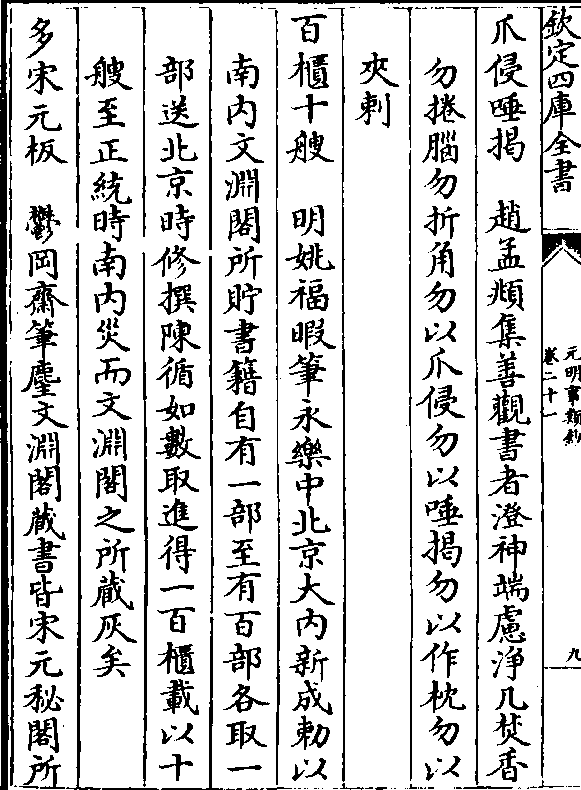 欽定四庫全書
元明事類鈔
卷二十一
九
爪侵唾揭　趙孟頫集善觀書者澄神端慮淨几焚香
勿捲腦勿折角勿以爪侵勿以唾揭勿以作枕勿以
夾刺
百櫃十艘　明姚福暇筆永樂中北京大内新成勅以
南内文淵閣所貯書籍自有一部至有百部各取一
部送北京時修撰陳循如數取進得一百櫃載以十
艘至正統時南内災而文淵閣之所藏灰矣
多宋元板　鬱岡齋筆塵文淵閣藏書皆宋元秘閣所